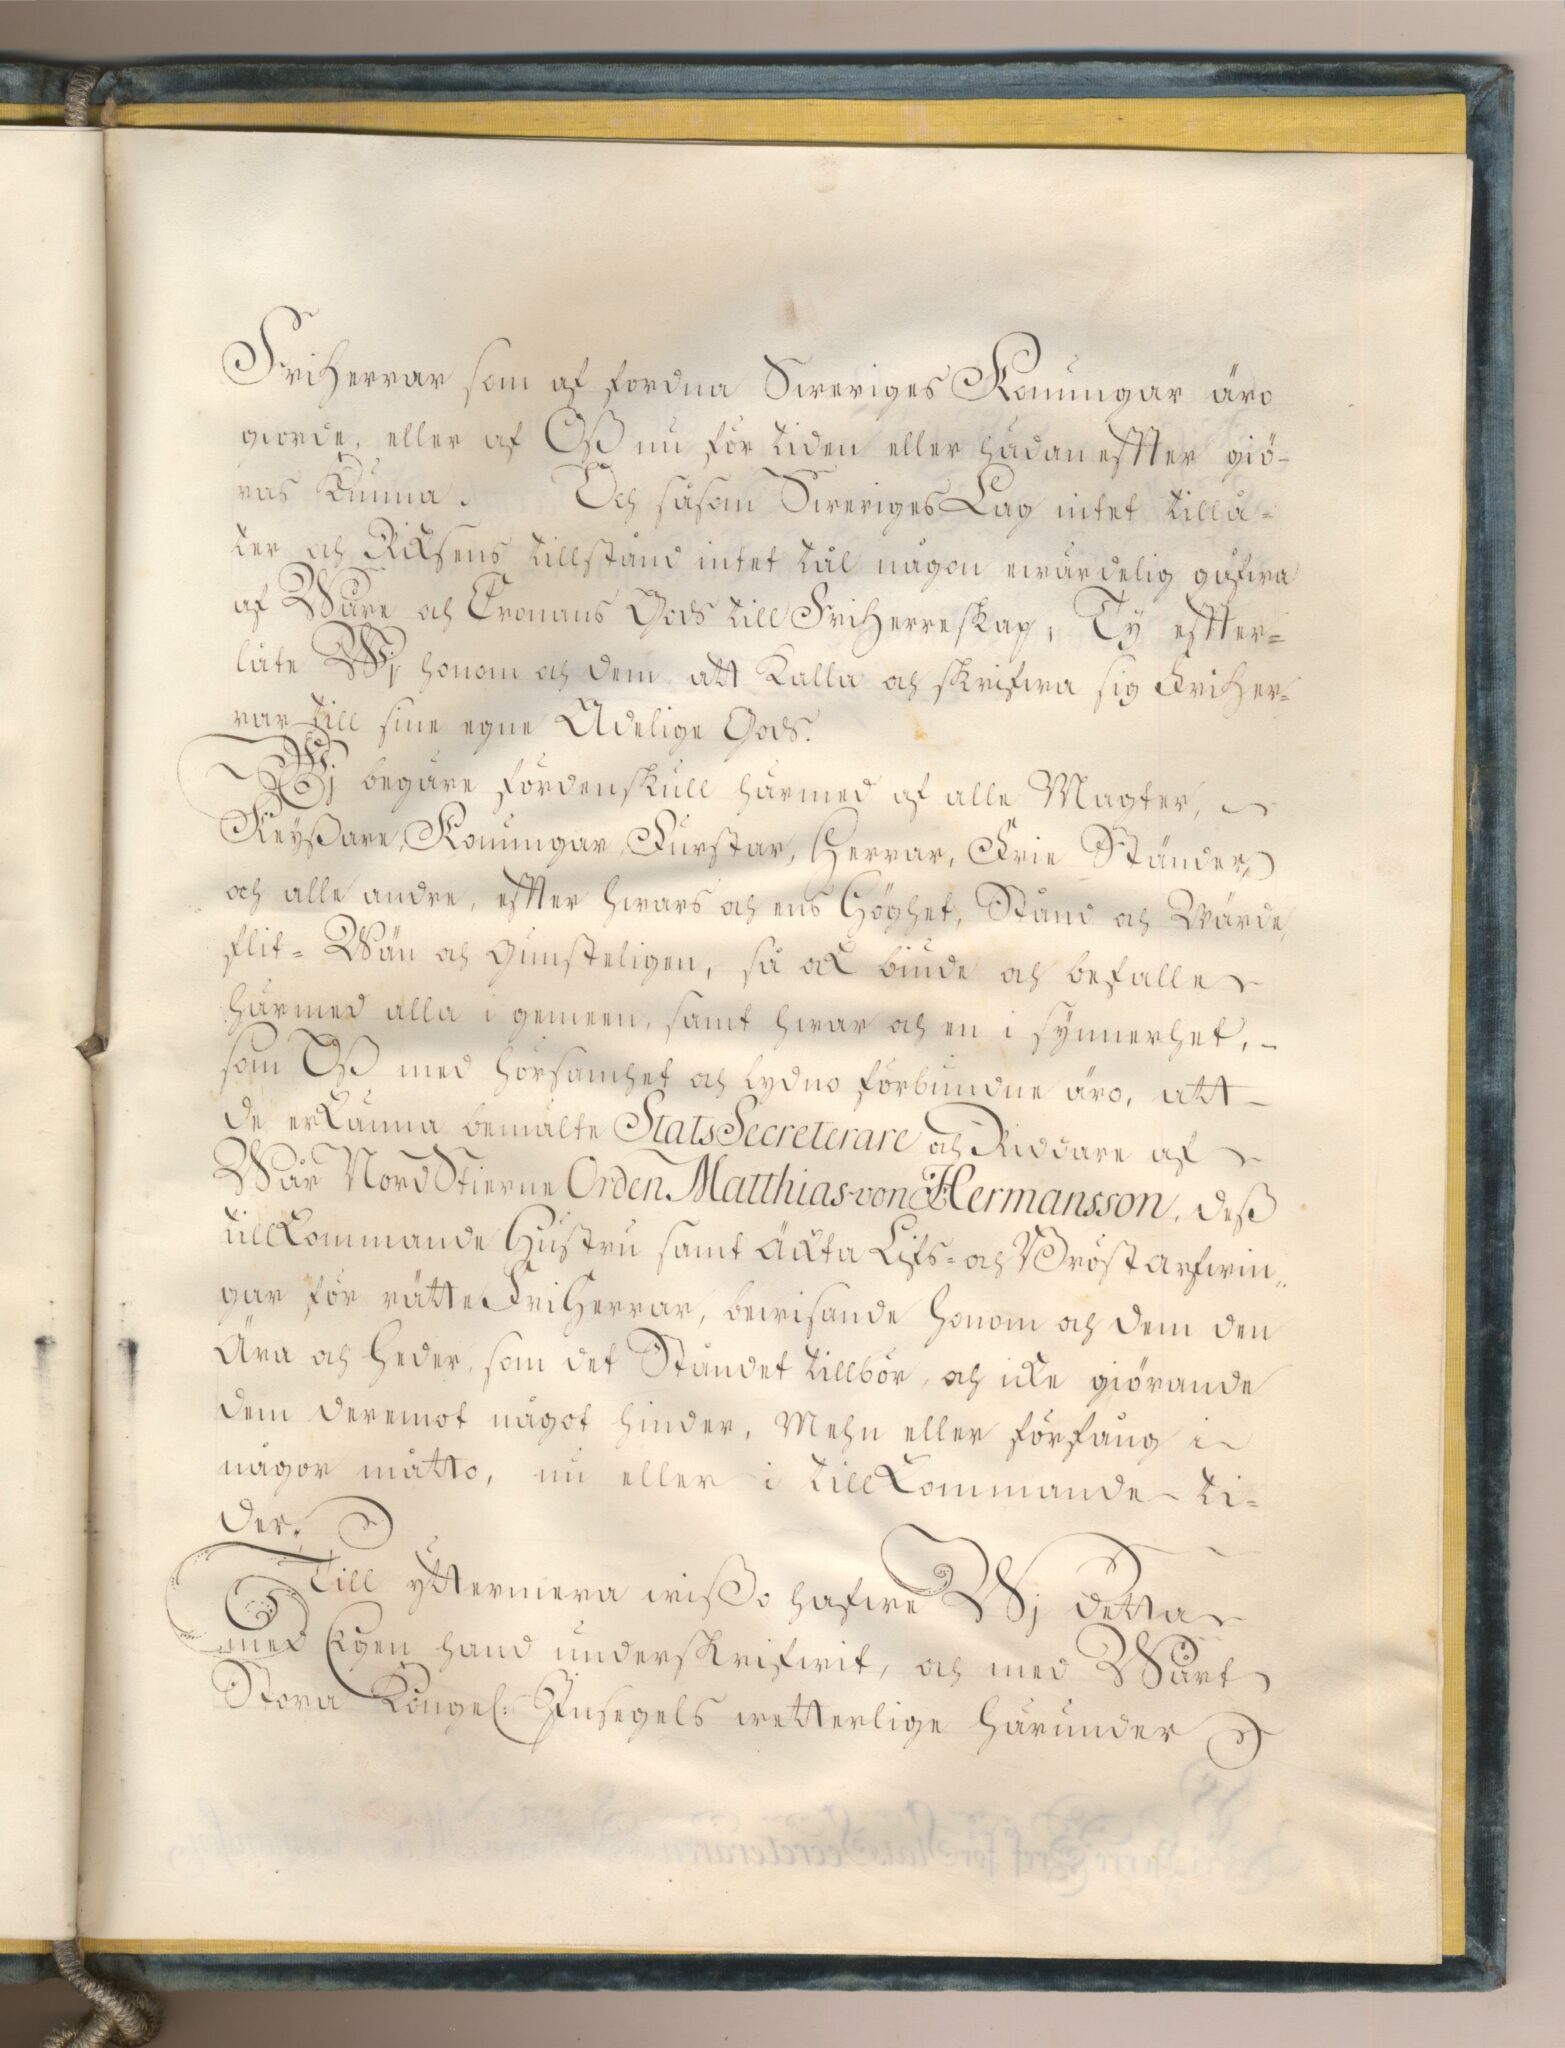 FriHerrar som af fordna Sweriges Konungar äro
giorde, eller af Oß nu för tiden eller hädaneffter giö-
ras kunna. Och såsom Sweriges Lag intet tillå-
ter och Riksens tillstånd intet tål någon ewärdelig gåfwa
af Wåre och Cronans Gods till FriHerreskap, Ty effter-
låte Wj honom och dem att kalla och skrifwa sig FriHer-
rar till sine egne Adelige Gods.
Wj begäre fördenskull härmed af alle Magter,
Keyßare, Konungar, Furstar, Herrar, Frie Ständer,
och alle andre, effter hwars och ens Höghet, Stånd och Wärde,
flit- Wän och gunsteligen, så ock biude och befalle
härmed alla i gemeen, samt hwar och en i synnerhet,
som Oß med hörsamhet och lydno förbundne äro, att
de erkänna bemälte StatsSecreterare och Riddare af
Wår NordStierne Orden Matthias von Hermansson, deß
tillkommande Hustru samt äckta Lifs- och Bröstarfwin-
gar för rätte FriHerrar, bewisande honom och dem den
Ära och heder, som det Ståndet tillbör, och icke giörande
dem deremot något hinder, Mehn eller förfång i
någor måtto, nu eller i tillkommande ti-
der.
Till yttermera wißo hafwe Wj detta
med Egen hand underskrifwit, och med Wårt
Stora Kongel: Insegels wetterlige härunder